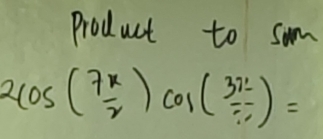 Product to sum
2cos (7x/2) cos (3x/2) =